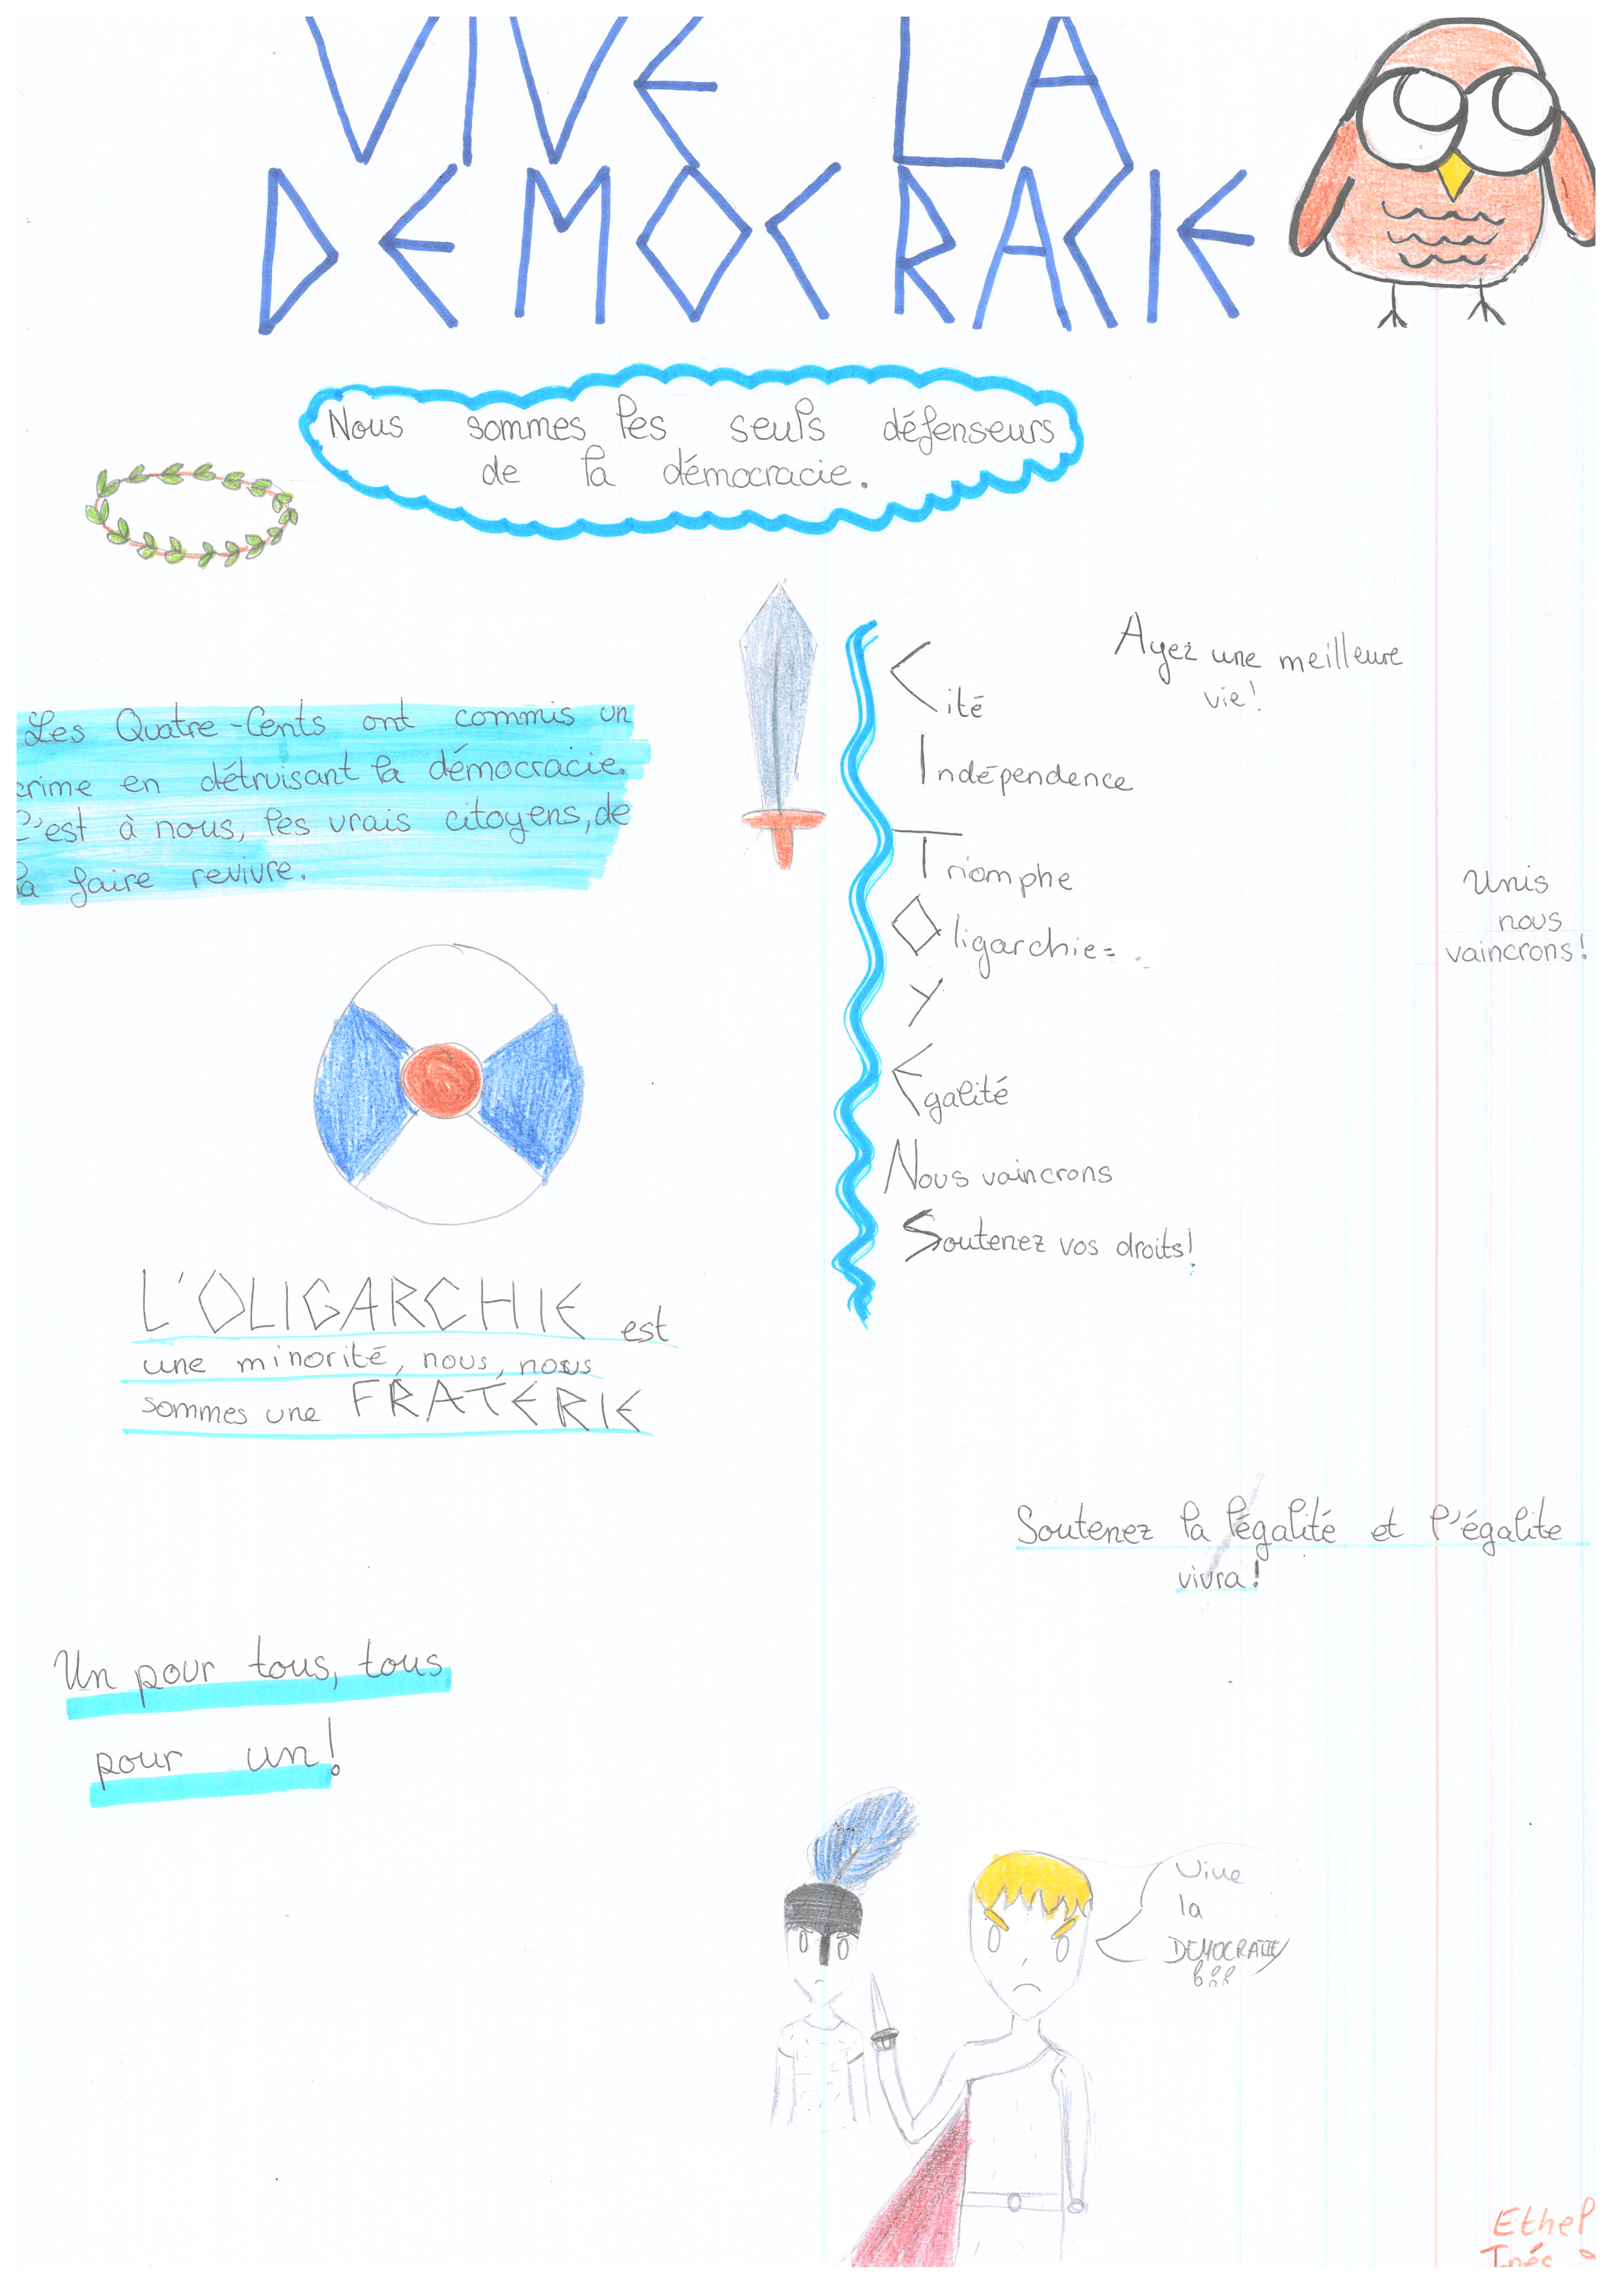 VIVE LA
DEMOCRACIE
Nous sommes les seuls défenseurs
de la démocracie.
Les Quatre-Cents ont commis un
crime en détruisant la démocracie.
C'est à nous, les vrais citoyens, de
la faire revivre.
Cité
Indépendence
Triomphe
Oligarchie=
Y
Egalité
Nous vaincrons
Soutenez vos droits!
Ayez une meilleure
vie!
Unis
nous
vaincrons!
L'OLIGARCHIE est
une minorité, nous, nous
sommes une FRATERIE
Soutenez la légalité et l'égalite
vivra!
Un pour tous, tous
pour un!
Vive
la
DEMOCRATIE
Ethel
Inés